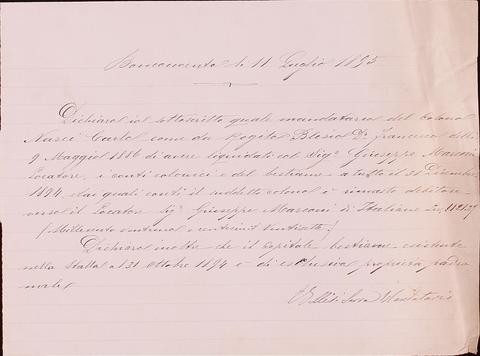 li 11 Luglio 1895
Dichiaro io sottoscritto quale mandatario del colono
Carlo come da Rogito Blesio Dr. Francesco delli
9 Maggio 1886 di avere liquidati col Sigr Giuseppe Marconi
Locatore, i conti colonici e del bestiame a tutto il 31 Dicembre
1894, dai quali conti il suddetto colono è rimasto debitore
verso il Locatore Sigr Giuseppe Marconi di Italiane
Dichiara inoltre che il capitale bestiame esistente
nella stalla al 31 Ottobre 1894 è di esclusiva proprietà padro
nale
Mandatario